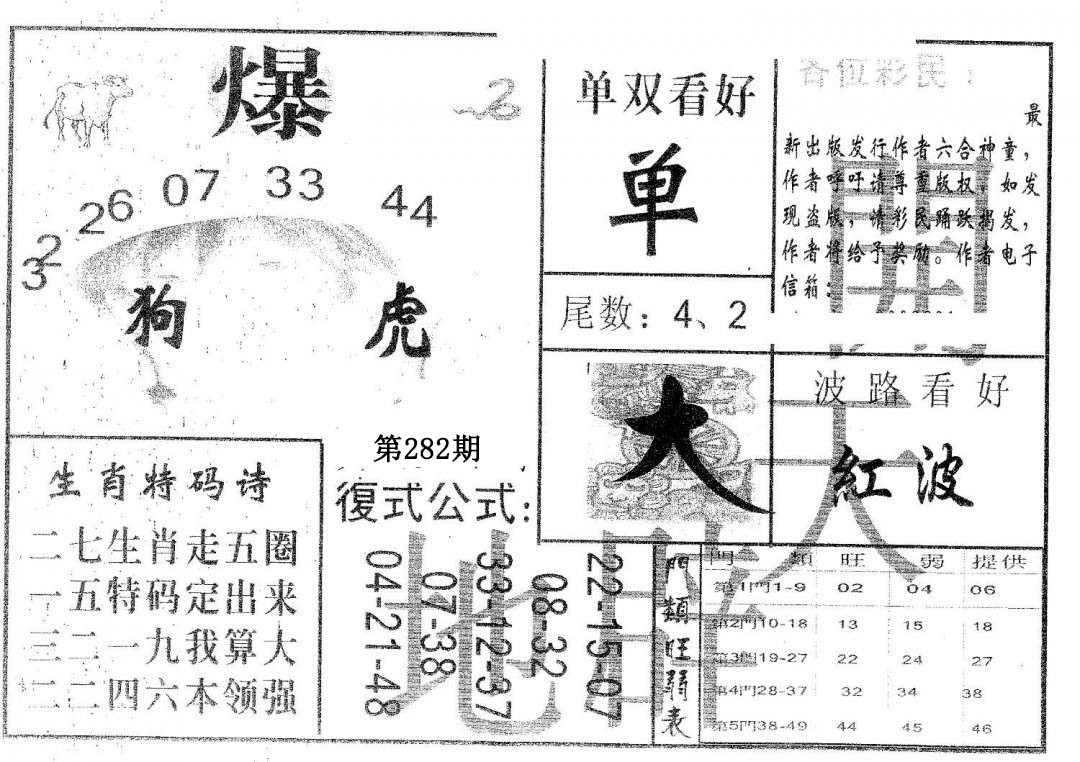 爆
32
26
07
33
44
狗
虎
单双看好
单
尾数：4、2
各位彩民：
最
新出版发行作者六合神童，
作者呼吁请尊重版权，如发
现盗版，请彩民踊跃揭发，
作者将给予奖励。作者电子
信箱：
大
波路看好
紅波
第282期
生肖特码诗
二七生肖走五圈
一五特码定出来
三二一九我算大
二二四六本领强
復式公式：
04-21-48
07-38
33-12-37
08-32
22-15-07
門類旺弱表
門類 旺 弱 提供
第1門1-9 02 04 06
第2門10-18 13 15 18
第3門19-27 22 24 27
第4門28-37 32 34 38
第5門38-49 44 45 46